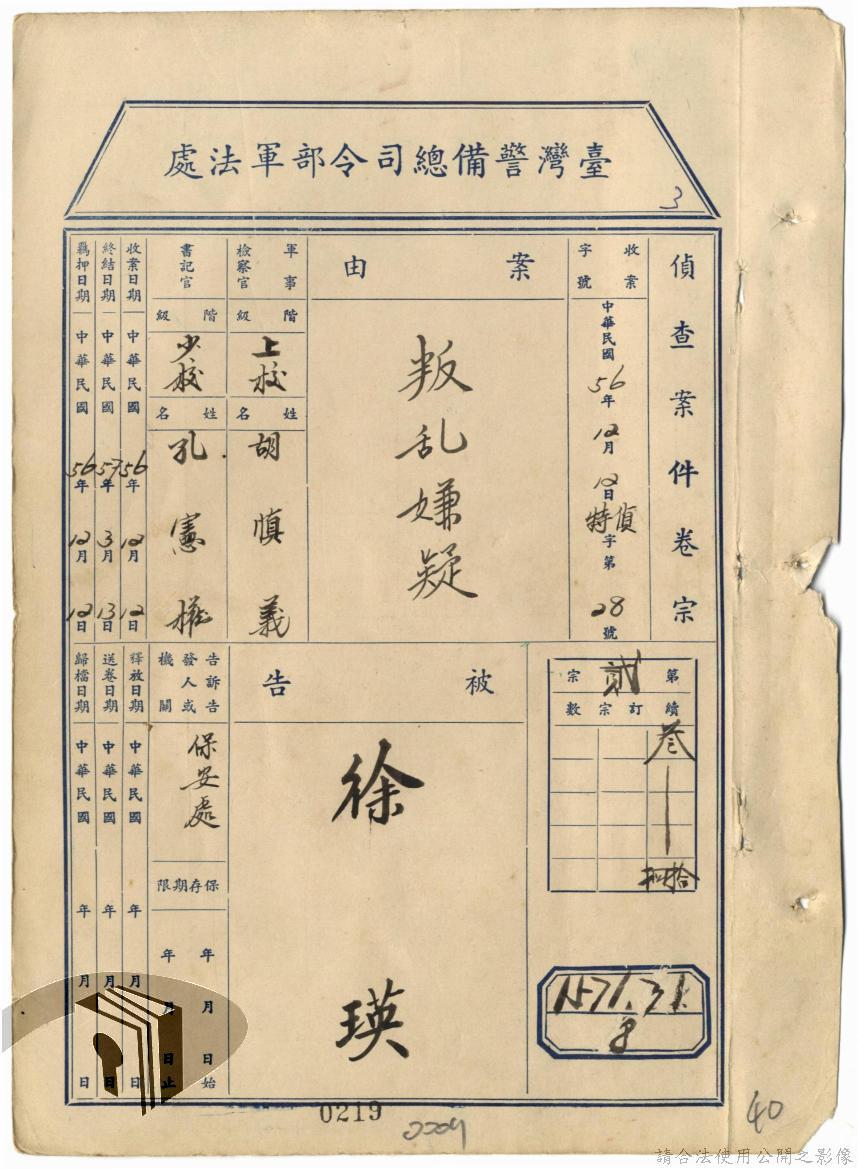 臺灣警備總司令部軍法處
3
偵查案件卷宗
收案字號
中華民國56年12月12日特偵字第28號
案由
叛乱嫌疑
軍事檢察官
階級
上校
姓名
胡慎義
書記官
階級
少校
姓名
孔憲
收案日期
中華民國56年12月12日
終結日期
中華民國57年3月13日
羈押日期
中華民國56年12月12日
第貳宗
續訂宗數
叁
拾
1571.31.
8
被告
徐瑛
告訴告發人或機關
保安處
保存期限
年月日始
年月日止
釋放日期
中華民國年月日
送卷日期
中華民國年月日
歸檔日期
中華民國年月日
0219
40
請合法使用公開之影像